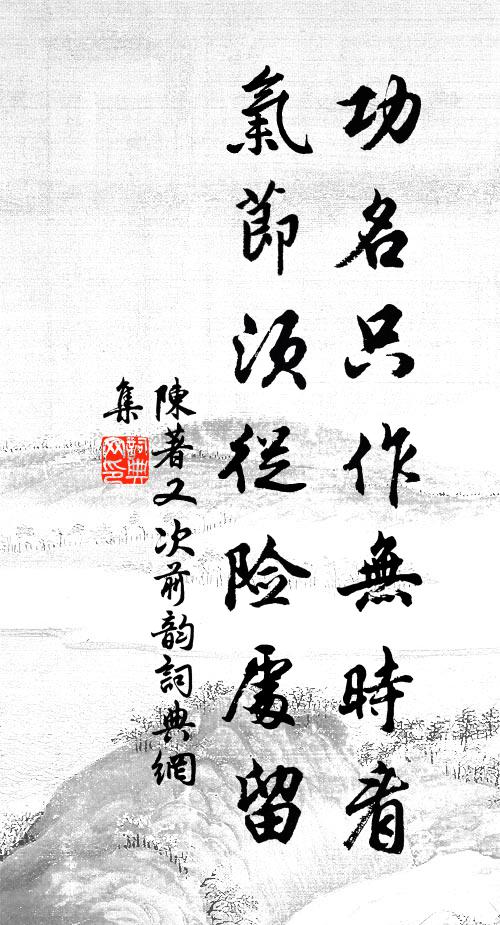 功名只作無時看
氣節須從險處留
陳著又次前韵詞典網
集
詞典網印